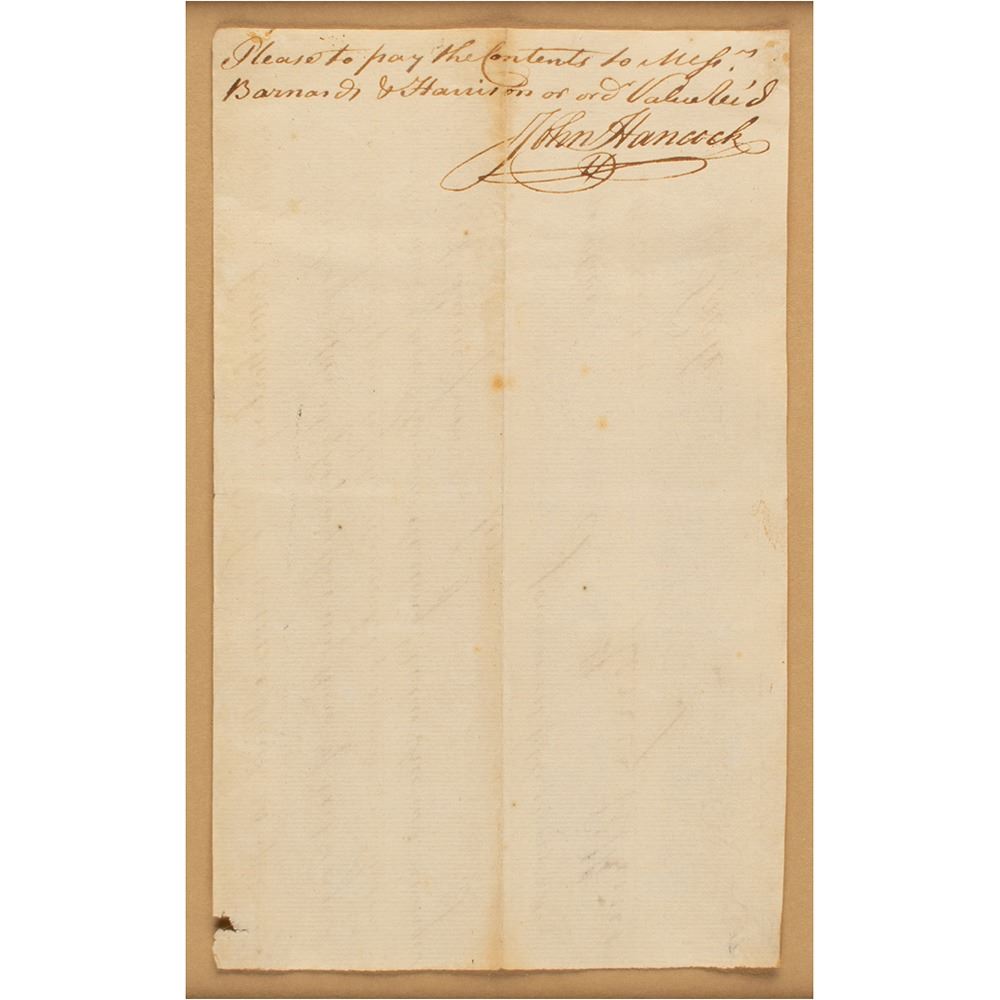 Please to pay the Contents to Mess.rs
Barnards & Harrison or ord Value Rec'd
John Hancock